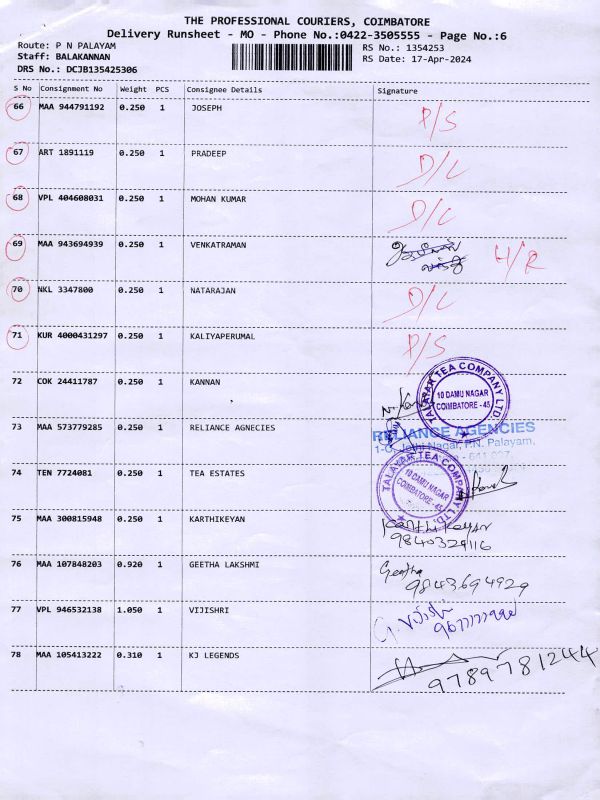 THE PROFESSIONAL COURIERS, COIMBATORE
Delivery Runsheet - MO - Phone No.:0422-3505555 - Page No.:6
Route: P N PALAYAM RS No.: 1354253
Staff: BALAKANNAN RS Date: 17-Apr-2024
DRS No.: DCJB135425306
S No Consignment No Weight PCS Consignee Details Signature
66 MAA 944791192 0.250 1 JOSEPH P/S
67 ART 1891119 0.250 1 PRADEEP D/L
68 VPL 404608031 0.250 1 MOHAN KUMAR D/L
69 MAA 943694939 0.250 1 VENKATRAMAN H/R
70 NKL 3347800 0.250 1 NATARAJAN D/L
71 KUR 4000431297 0.250 1 KALIYAPERUMAL P/S
72 COK 24411787 0.250 1 KANNAN
TALAYAR TEA COMPANY LTD
10 DAMU NAGAR
COIMBATORE - 45
73 MAA 573779285 0.250 1 RELIANCE AGNECIES
RELIANCE AGENCIES
Nagar, P.N. Palayam,
74 TEN 7724081 0.250 1 TEA ESTATES
TALAYAR TEA COMPANY LTD.
10 DAMU NAGAR
COIMBATORE - 45
75 MAA 300815948 0.250 1 KARTHIKEYAN Karthikeyan
9840329116
76 MAA 107848203 0.920 1 GEETHA LAKSHMI Geetha
9843694929
77 VPL 946532138 1.050 1 VIJISHRI G. Vijishri
78 MAA 105413222 0.310 1 KJ LEGENDS
9789781244